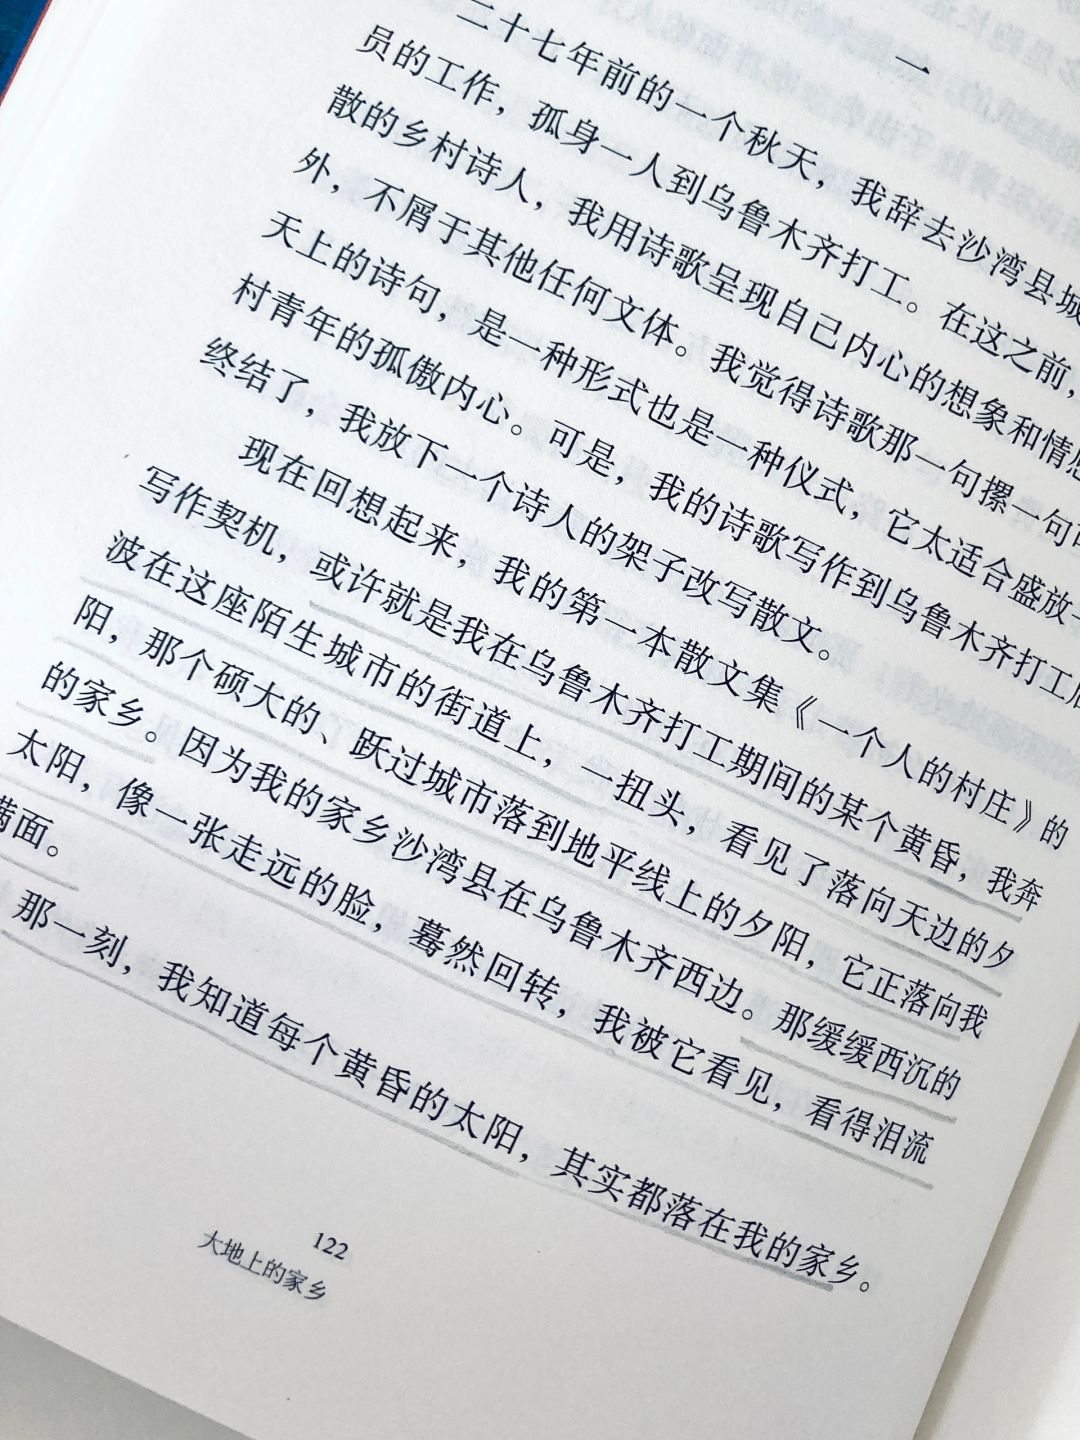 一
二十七年前的一个秋天，我辞去沙湾县城
员的工作，孤身一人到乌鲁木齐打工。在这之前，
散的乡村诗人，我用诗歌呈现自己内心的想象和情感
外，不屑于其他任何文体。我觉得诗歌那一句摞一句
天上的诗句，是一种形式也是一种仪式，它太适合盛放
村青年的孤傲内心。可是，我的诗歌写作到乌鲁木齐打工后
终结了，我放下一个诗人的架子改写散文。
现在回想起来，我的第一本散文集《一个人的村庄》的
写作契机，或许就是我在乌鲁木齐打工期间的某个黄昏，我奔
波在这座陌生城市的街道上，一扭头，看见了落向天边的夕
阳，那个硕大的、跃过城市落到地平线上的夕阳，它正落向我
的家乡。因为我的家乡沙湾县在乌鲁木齐西边。那缓缓西沉的
太阳，像一张走远的脸，蓦然回转，我被它看见，看得泪流
满面。
那一刻，我知道每个黄昏的太阳，其实都落在我的家乡。
122
大地上的家乡